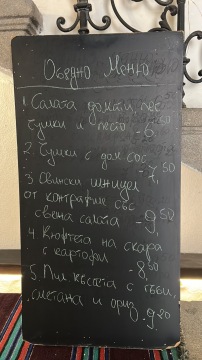 Обедно Меню
1 Салата домати пес
чушки и песто - 6,50
2. Чушки с дом. сос
- 7,50
3. Свински шницел
от контрафиле със
свежа салата - 9,50
4. Кюфтета на скара
с картофи
- 8,50
5. Пил. късчета с гъби,
сметана и ориз. 9,20